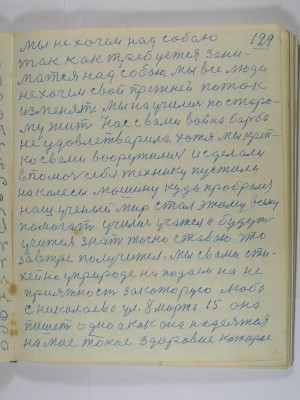 129
Мы не хочем над собою
так как требуется зани-
матся над собою, мы все люди
нехочем свой прежней поток
изменят. Мы научились по старо-
му жит. Нас свами война борьба
не удовлетварила хотя мы креп-
ко свами вооружились и сделали
в помоч себе технику пустили
на колеса машину куда пробрался
наш ученый мир стал этому делу
помогат учились учатся и будут
учится знат точно ставою что
завтре получится. Мы свами сти-
хейно уприроде на подаем на не
приятност за которую люба
с николаево ул. 8 марта 15 она
пишет о дно а как она наделятся
на мае такое здоровие которое